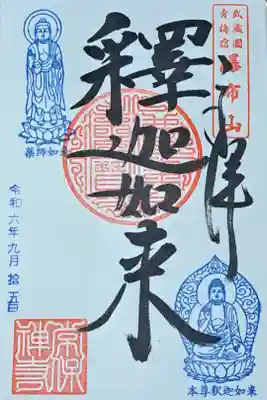 武蔵國
青梅宿
瀑布山
奉拝
釋迦如来
薬師如来
令和六年九月拾五日
本尊釈迦如来
常保
禅寺